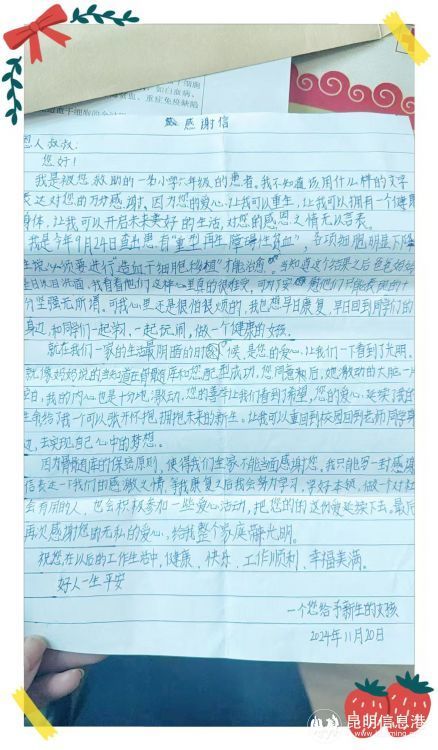 细胞
如白血病、
血、重症免疫缺陷
感谢信
恩人叔叔：
您好！
我是被您救助的一名小学六年级的患者。我不知道该用什么样的文字
表达对您的万分感谢，因为您的爱心，让我可以重生，让我可以拥有一个健康
身体，让我可以开启未来美好的生活，对您的感恩之情无以言表。
我是今年9月24日查出患有"重型再生障碍性贫血"，各项细胞明显下降
必须要进行"造血干细胞移植"才能治愈。当知道这个结果之后爸爸妈妈
我看着他们这样心里真的很难受，可为了
分坚强无所谓。可我心里还是很怕很烦的，我也想早日康复，早日回到同学们的
身边，和同学们一起学习，一起玩闹，做一个健康的女孩。
就在我们一家的生活最阴暗的时候，是您的爱心，让我们一下看到了光明。
就像妈妈说的当知道在骨髓库和您配型成功，您同意捐后，她激动的大脑一片
空白，我的内心也是十分地激动，您的善举让我们看到了希望，您的爱心，延续了我的
生命给了我一个可以敞开怀抱，拥抱未来的新生。让我可以重回到校园回到老师同学身
边，去实现自己心中的梦想。
因为骨髓库的保密原则，使得我们全家不能当面感谢您，我只能写一封感谢
信表达一下我们的感激之情，等我康复之后我会努力学习，学好本领，做一个对社
会有用的人，也会积极参加一些爱心活动，把您的的这份爱延续下去。最后
再次感谢您的无私的爱心，给我整个家庭带来光明。
祝您在以后的工作生活中，健康、快乐、工作顺利、幸福美满。
好人一生平安
一个您给予新生的女孩
2024年11月20日
昆明信息港